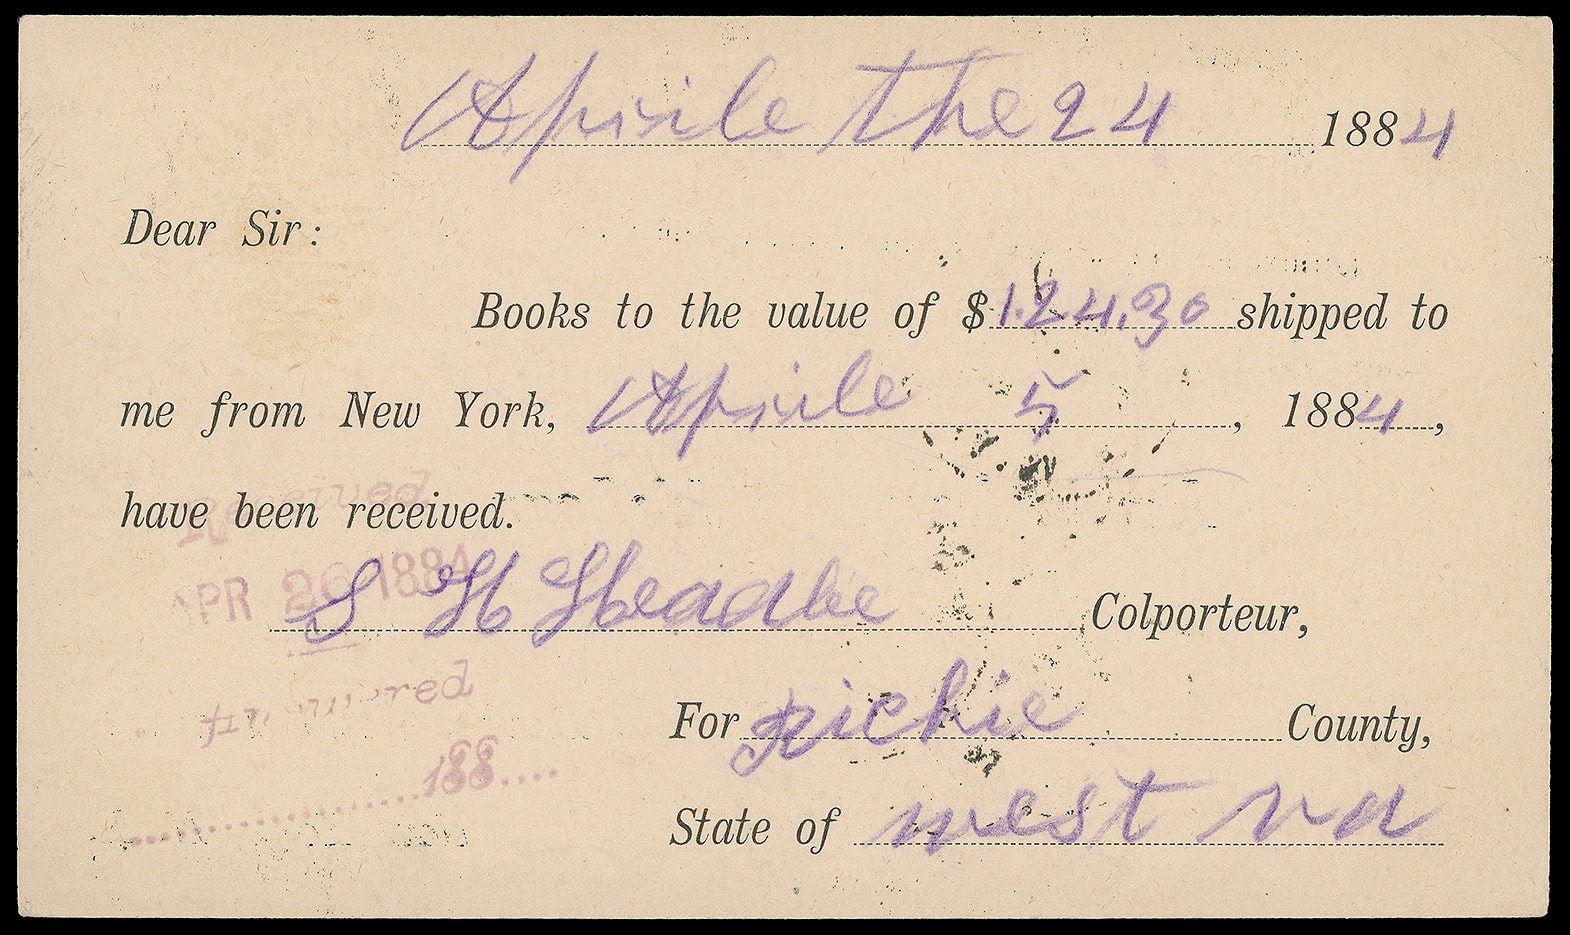 Aprile the 24 1884
Dear Sir:
Books to the value of $124.30 shipped to
me from New York, Aprile 5, 1884,
have been received.
Received
APR 26 1884
S H Headlee Colporteur,
For Richie County,
State of west va
188....